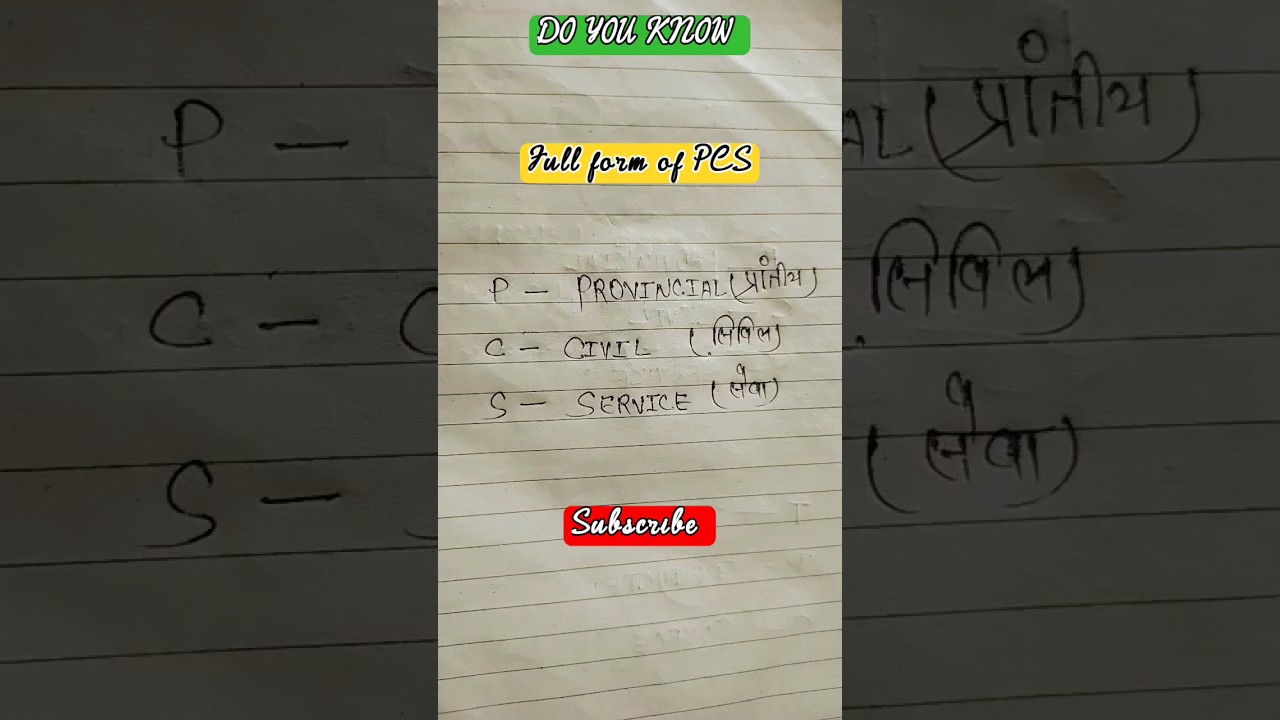 DO YOU KNOW
Full form of PCS
P — PROVINCIAL (प्रांतीय)
C — CIVIL (सिविल)
S — SERVICE (सेवा)
Subscribe